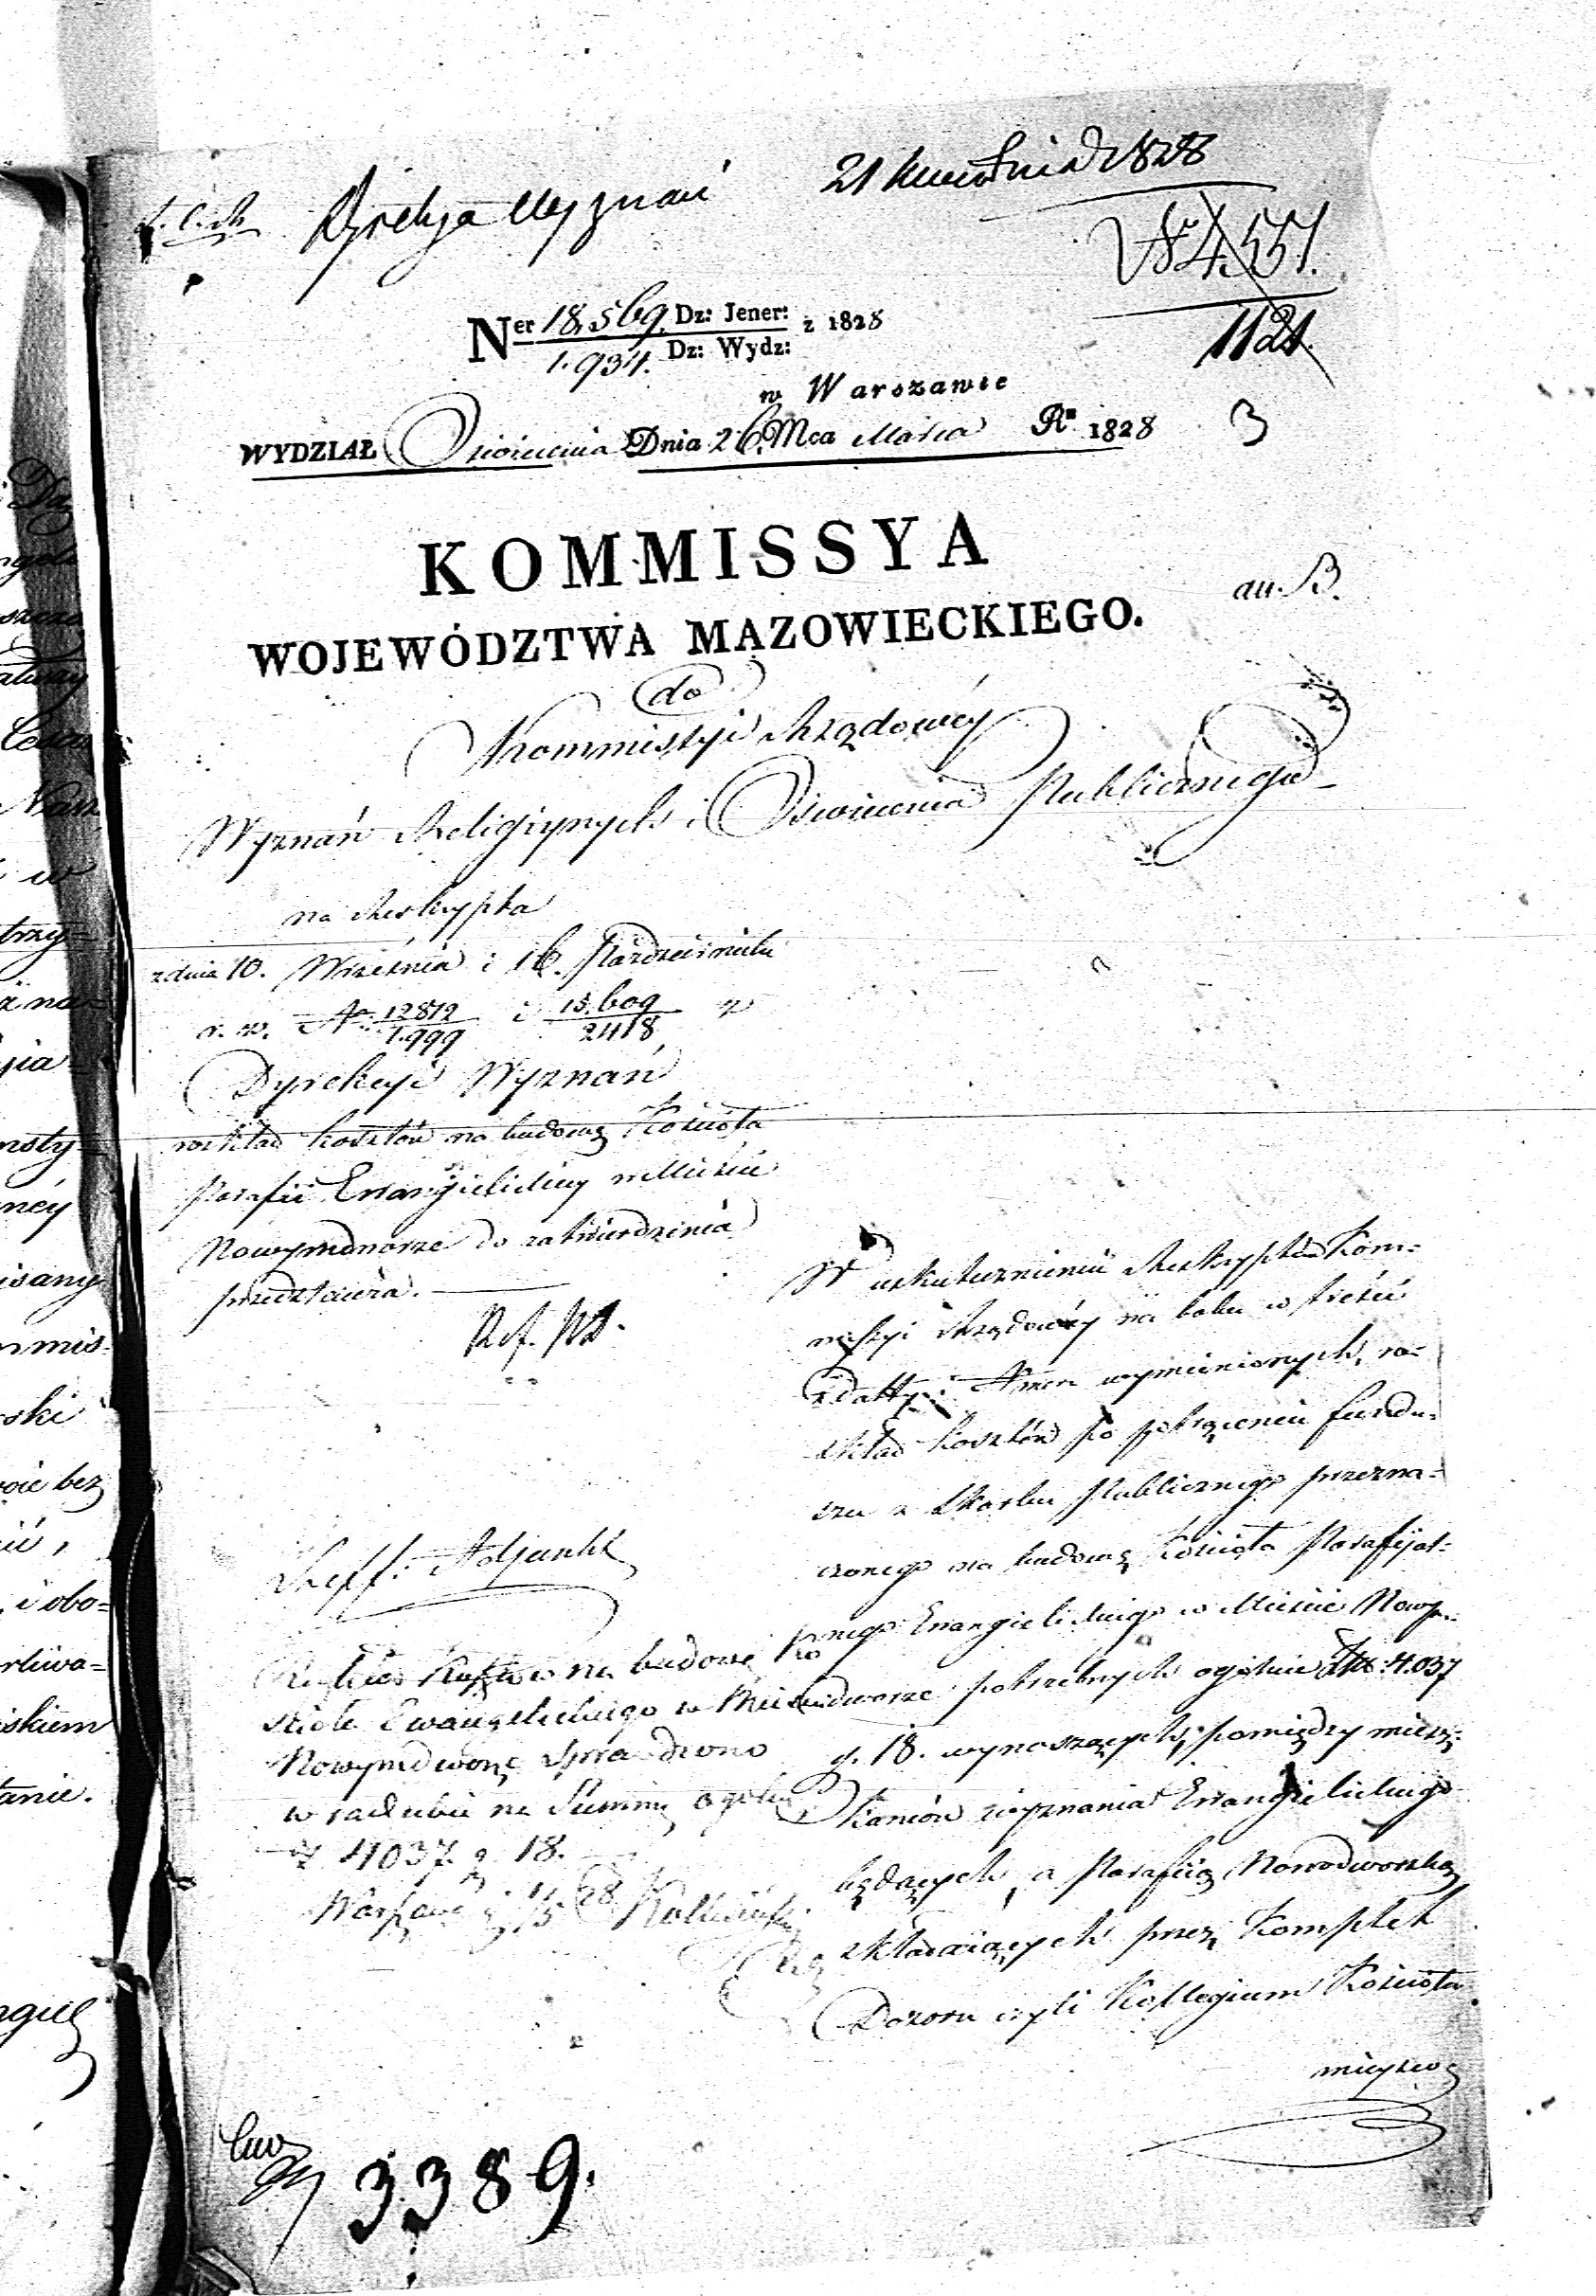 Dyrekcja Wyznań
21 kwietnia 1828
Nr 4551.
1121.
Ner 18,569. Dz: Jener: z 1828
1.934. Dz: Wydz:
w Warszawie
WYDZIAŁ Oswiecenia Dnia 26. Mca Marca Ru 1828
3
KOMMISSYA
WOJEWÓDZTWA MAZOWIECKIEGO.
ad B.
do
Kommissyi Rządowéy
Wyznań Religijnych i Oswiecenia Publicznego
na Reskrypta
z dnia 10. Września i 16. Października
r. z. Nr 12812/1.999 i 15.609/2418 z
Dyrekcyi Wyznań
rozkład kosztów na budowę Kościoła
Parafii Ewangielickiey w Mieście
Nowymdworze do zatwierdzenia
przedstawia.
W uskutecznieniu Reskryptów Kom-
missyi Rządowéy na boku w treści
z datty i Nmeru wymienionych, roz-
kład kosztów po potrąceniu fundu-
szu z Skarbu Publicznego przezna-
czonego na budowę Kościoła Parafijal-
nego Ewangielickiego w Mieście Nowym-
dworze potrzebnych ogólnie Złp: 4.037
g. 18. wynoszących, pomiędzy miesz-
kańców wyznania Ewangielickiego
będących, a Parafiią Nowodworską
składaiących przez Komplet
Dozoru czyli Kollegium Kościoła
mieysco
Reff: Adjunkt
Rozkład Kosztów na budowę Ko
scioła Ewangelickiego w Mieście
Nowymdworze sprawdzono
w rachubie na Summę ogólną
zł 4037 g 18.
3389.